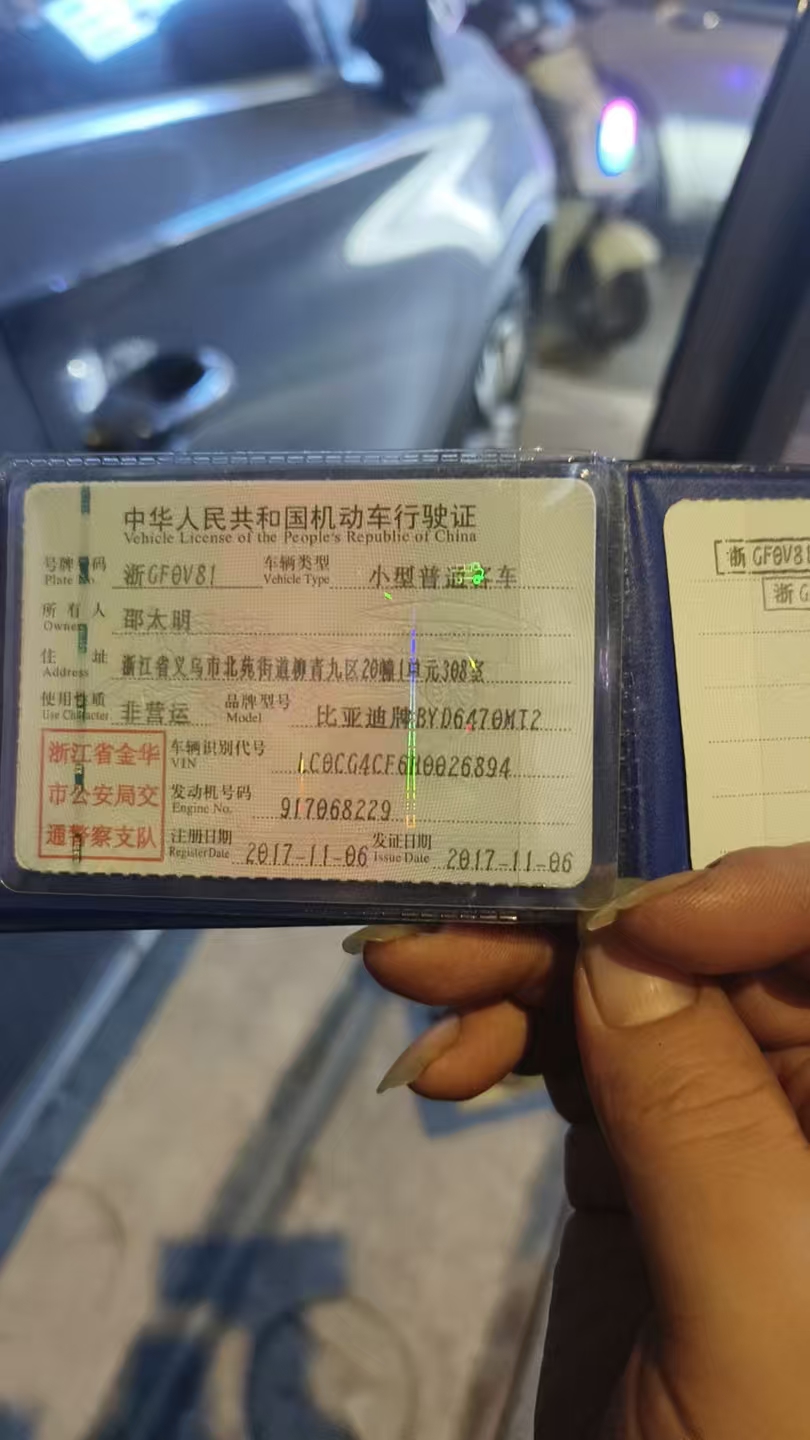 中华人民共和国机动车行驶证
Vehicle License of the People's Republic of China
号牌号码 浙GF0V81 车辆类型 小型普通客车
Plate No. Vehicle Type
所有人 邵太明
Owner
住址 浙江省义乌市北苑街道柳青九区20幢1单元308室
Address
使用性质 非营运 品牌型号 比亚迪牌BYD6470MT2
Use Character Model
浙江省金华
市公安局交
通警察支队
车辆识别代号 LC0CG4CF6H0026894
VIN
发动机号码 917068229
Engine No.
注册日期 2017-11-06 发证日期 2017-11-06
Register Date Issue Date
浙GF0V81
浙G